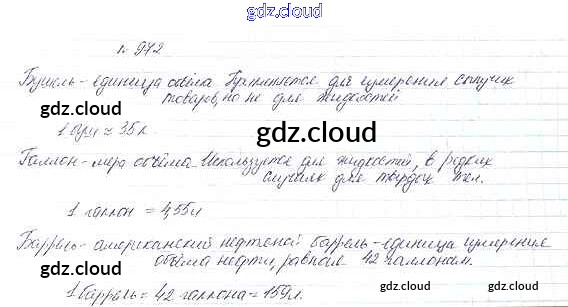 gdz.cloud
№ 942
Бушель - единица объёма. Применяется для измерения сыпучих
товаров, но не для жидкостей
gdz.cloud
gdz.cloud
1 буш ≈ 35 л.
gdz.cloud
Галлон - мера объёма. Используется для жидкостей, в редких
случаях для твёрдых тел.
1 галлон = 4,55 л
gdz.cloud
Баррель - американский нефтяной баррель - единица измерения
объёма нефти, равная 42 галлонам.
1 баррель = 42 галлона = 159 л.
gdz.cloud
gdz.cloud